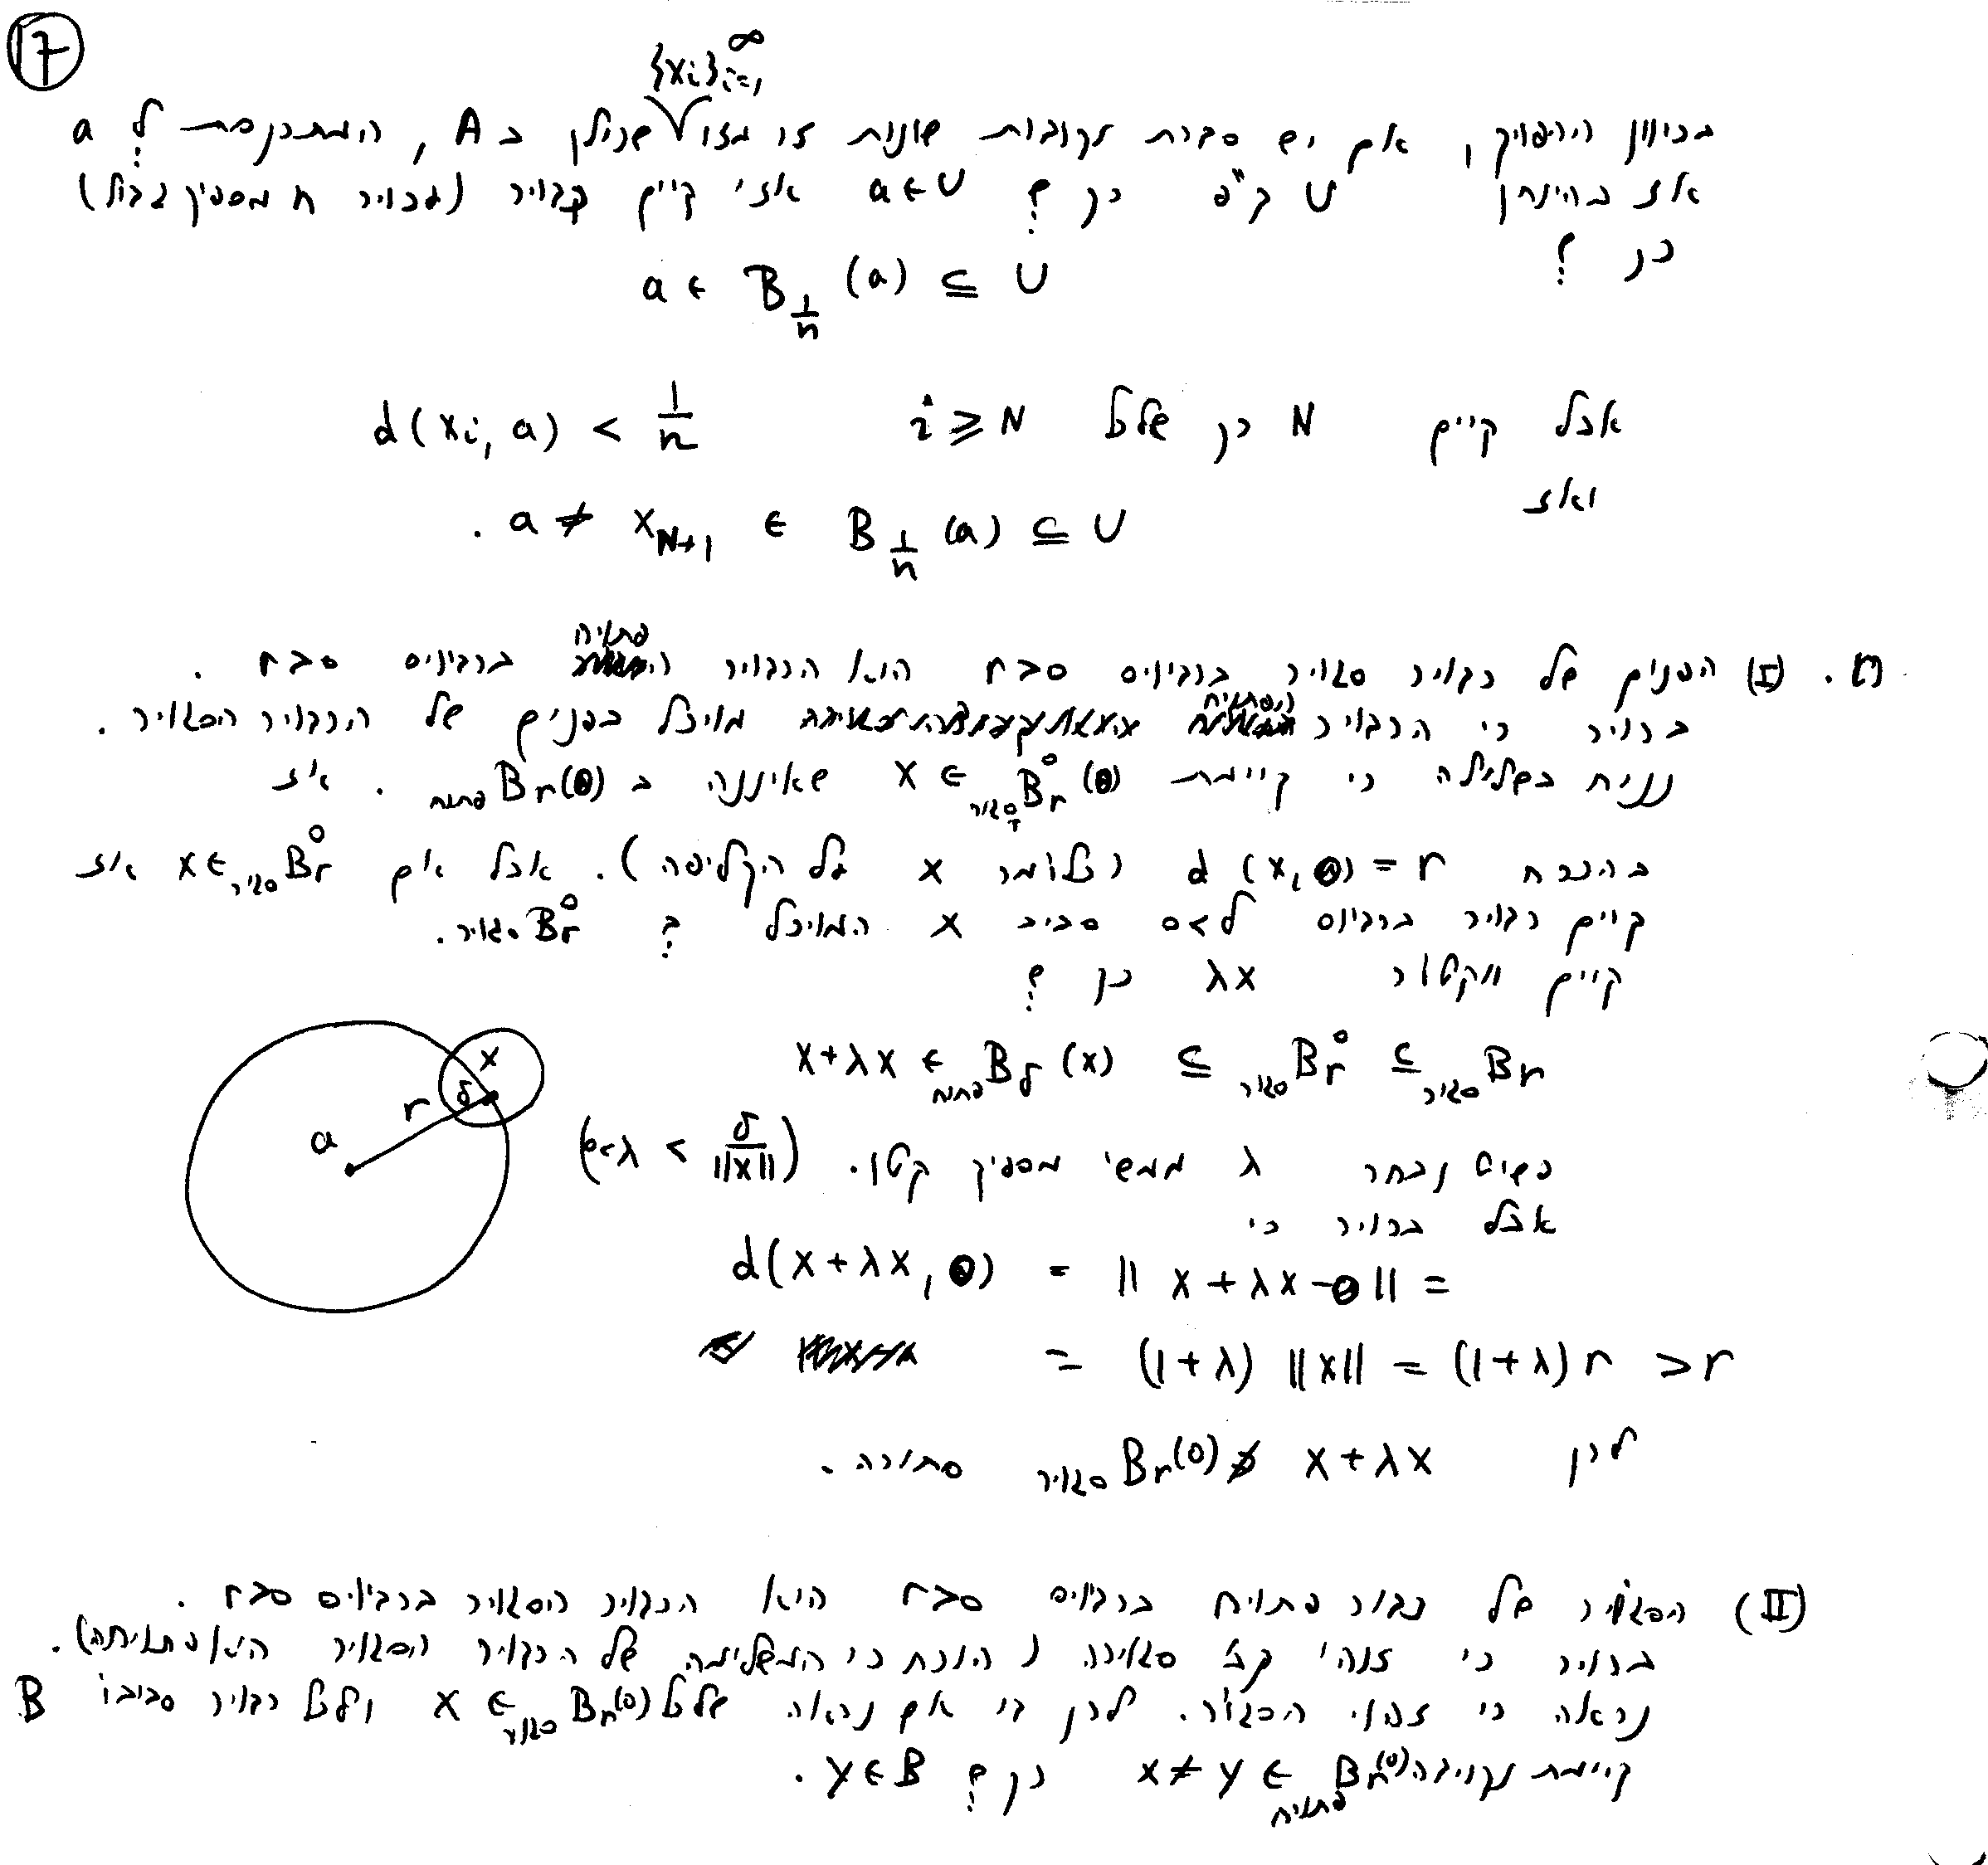 7
{xi}∞i=1
בכיוון ההפוך, אם יש סדרת נקודות שונות זו מזו שכולן ב A, המתכנסת ל a
אז בהינתן U ק"פ כך ש a∈U אזי קיים כדור (עבור n מספיק גדול)
כך ש
a ∈ B_{1/n}(a) ⊆ U
אבל קיים N כך שלכל i ≥ N d(xi, a) < 1/n
ואז
. a ≠ x_{N+1} ∈ B_{1/n}(a) ⊆ U
ח. (I) הפנים של כדור סגור ברדיוס r>0 הוא הכדור הפתוח ברדיוס r>0.
ברור כי הכדור הפתוח מוכל בפנים של הכדור הסגור.
נניח בשלילה כי קיימת x ∈ B°r(0) סגור שאיננה ב Br(0) פתוח. אז
בהכרח d(x,0) = r (כלומר x על הקליפה). אבל אם x∈ B°r סגור אז
קיים כדור ברדיוס δ>0 סביב x המוכל ב B°r סגור.
קיים וקטור λx כך ש
x+λx ∈ Bδ(x) פתוח ⊆ B°r סגור ⊆ Br סגור
פשוט נבחר λ ממשי מספיק קטן. (0<λ < δ/||x||)
אבל ברור כי
d(x+λx, 0) = || x+λx-0 || =
= (1+λ) ||x|| = (1+λ) r > r
לכן x+λx ∉ Br(0) סגור סתירה.
a r δ x
(II) הסגור של כדור פתוח ברדיוס r>0 הוא הכדור הסגור ברדיוס r>0.
ברור כי זוהי קב' סגורה (הוכח כי המשלימה של הכדור הסגור היא פתוחה).
נראה כי זהו הסגור. לכן די אם נראה שלכל x ∈ Br(0) סגור ולכל כדור סביבו B
קיימת נקודה x≠y ∈ Br(0) פתוח כך ש y∈B.